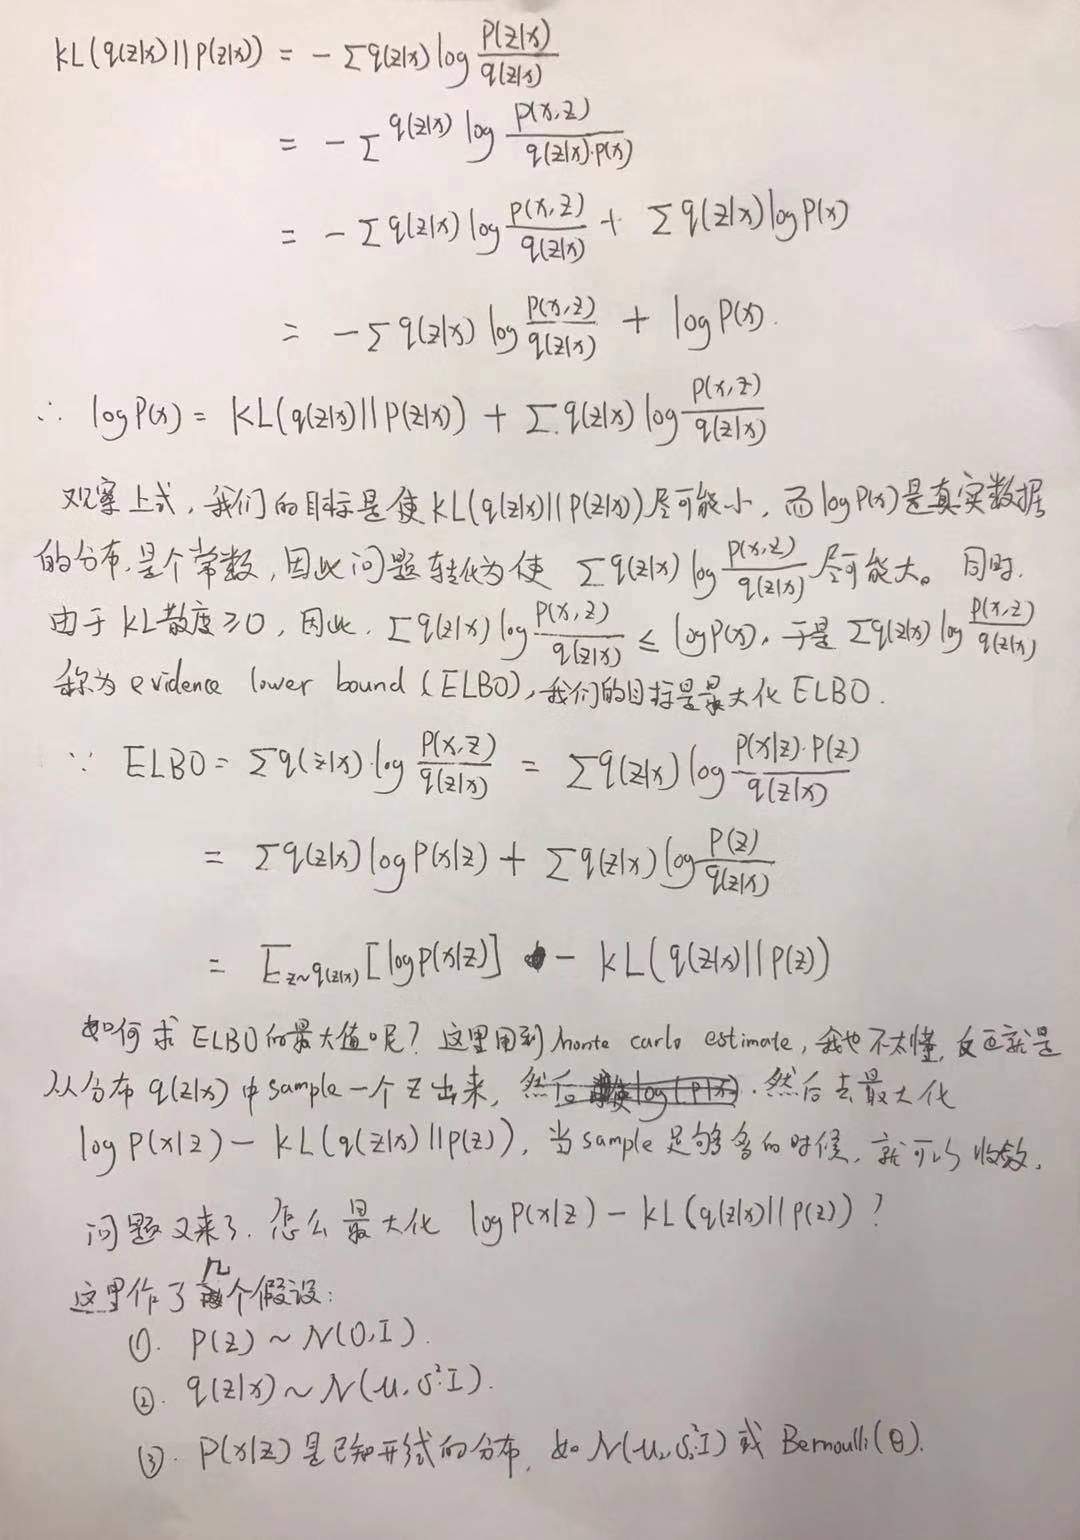 KL(q(z|x)||P(z|x)) = -Σq(z|x) log P(z|x)/q(z|x)
= -Σ q(z|x) log P(x,z)/q(z|x)·P(x)
= -Σ q(z|x) log P(x,z)/q(z|x) + Σ q(z|x) log P(x)
= -Σ q(z|x) log P(x,z)/q(z|x) + log P(x).
∴ log P(x) = KL(q(z|x)||P(z|x)) + Σ q(z|x) log P(x,z)/q(z|x)
观察上式, 我们的目标是使 KL(q(z|x)||P(z|x)) 尽可能小, 而 log P(x) 是真实数据
的分布, 是个常数, 因此问题转化为使 Σ q(z|x) log P(x,z)/q(z|x) 尽可能大。同时,
由于 KL散度 ≥ 0, 因此, Σ q(z|x) log P(x,z)/q(z|x) ≤ log P(x), 于是 Σ q(z|x) log P(x,z)/q(z|x)
称为 evidence lower bound (ELBO), 我们的目标是最大化 ELBO.
∵ ELBO = Σ q(z|x)·log P(x,z)/q(z|x) = Σ q(z|x) log P(x|z)·P(z)/q(z|x)
= Σ q(z|x) log P(x|z) + Σ q(z|x) log P(z)/q(z|x)
= E z~q(z|x) [log P(x|z)] - KL(q(z|x)||P(z))
如何求 ELBO 的最大值呢? 这里用到 Monte carlo estimate, 我也不太懂, 反正就是
从分布 q(z|x) 中 sample 一个 z 出来, 然后去最大化
log P(x|z) - KL(q(z|x)||P(z)), 当 sample 足够多的时候, 就可以收敛.
问题又来了, 怎么最大化 log P(x|z) - KL(q(z|x)||P(z))?
这里作了几个假设:
①. P(z) ~ N(0, I).
②. q(z|x) ~ N(u, σ²I).
③. P(x|z) 是已知形式的分布, 如 N(u₂, σ₂²I) 或 Bernoulli(θ).